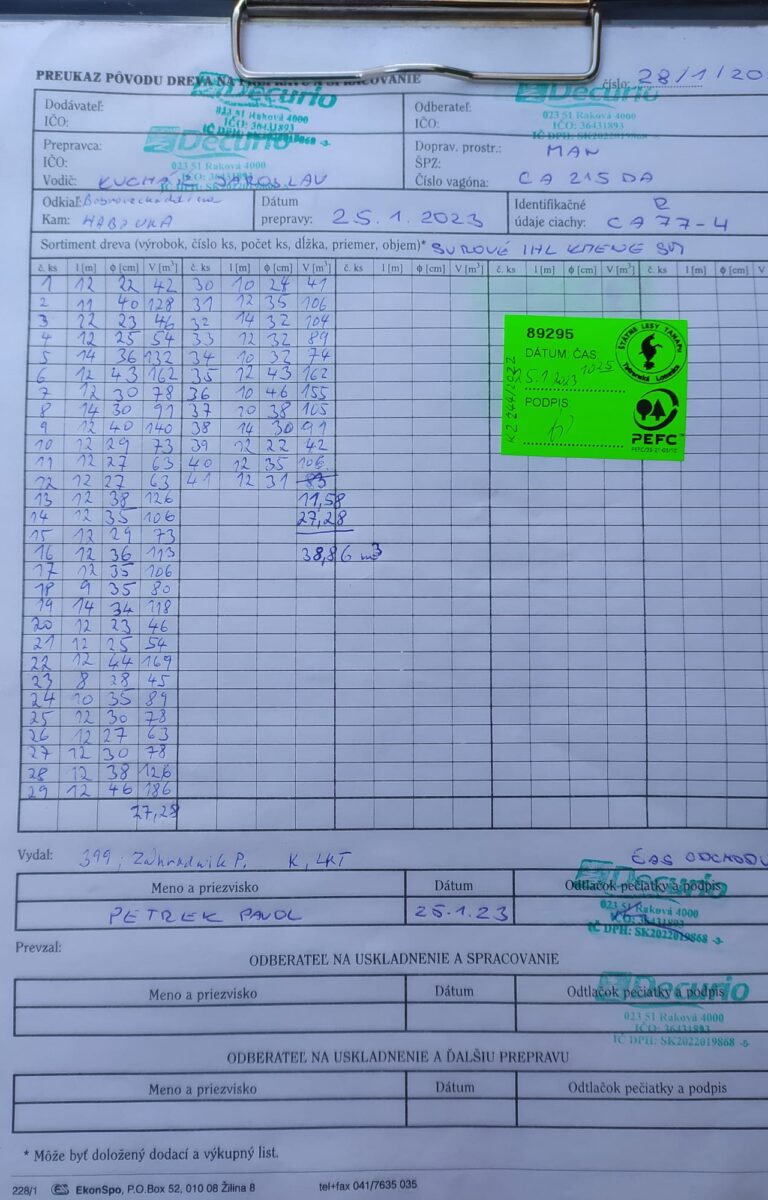 PREUKAZ PÔVODU DREVA NA PREPRAVU A SPRACOVANIE
číslo: 28/1/20
Dodávateľ:
IČO:
Decurio
023 51 Raková 4000
IČO: 36431893
IČ DPH: SK2022019868 -3-
Odberateľ:
IČO:
Decurio
023 51 Raková 4000
IČO: 36431893
IČ DPH: SK2022019868
Prepravca:
IČO:
Vodič: KUCHÁR JAROSLAV
Decurio
023 51 Raková 4000
Doprav. prostr.: MAN
ŠPZ:
Číslo vagóna: CA 215 DA
Odkiaľ:
Kam: HABOVKA
Dátum
prepravy: 25.1.2023
Identifikačné
údaje ciachy: CA 77-4
Sortiment dreva (výrobok, číslo ks, počet ks, dĺžka, priemer, objem)* SUROVÉ IHL KMENE
č. ks l [m] ϕ [cm] V [m³] č. ks l [m] ϕ [cm] V [m³] č. ks l [m] ϕ [cm] V [m³] č. ks l [m] ϕ [cm] V [m³] č. ks l [m] ϕ [cm] V
1 12 22 42 30 10 24 41
2 11 40 128 31 12 35 106
3 12 23 46 32 14 32 104
4 12 25 54 33 12 32 89
5 14 36 132 34 10 32 74
6 12 43 162 35 12 43 162
7 12 30 78 36 10 46 155
8 14 30 91 37 10 38 105
9 12 40 140 38 14 30 91
10 12 29 73 39 12 22 42
11 12 27 63 40 12 35 106
12 12 27 63 41 12 31 83
13 12 38 126 11,58
14 12 35 106 27,28
15 12 29 73
16 12 36 113 38,86 m3
17 12 35 106
18 9 35 80
19 14 34 118
20 12 23 46
21 12 25 54
22 12 44 169
23 8 28 45
24 10 35 89
25 12 30 78
26 12 27 63
27 12 30 78
28 12 38 126
29 12 46 186
27,28
89295
DÁTUM ČAS
25.1.2023 1025
PODPIS
ŠTÁTNE LESY TANAPU
Tatranská Lomnica
PEFC
Vydal: 399, Záhradník P. K, LKT
ČAS ODCHODU
Meno a priezvisko Dátum Odtlačok pečiatky a podpis
PETREK PAVOL 25.1.23
Decurio
023 51 Raková 4000
IČO: 36431893
IČ DPH: SK2022019868 -3-
Prevzal:
ODBERATEĽ NA USKLADNENIE A SPRACOVANIE
Meno a priezvisko Dátum Odtlačok pečiatky a podpis
Decurio
023 51 Raková 4000
IČO: 36431893
IČ DPH: SK2022019868 -5-
ODBERATEĽ NA USKLADNENIE A ĎALŠIU PREPRAVU
Meno a priezvisko Dátum Odtlačok pečiatky a podpis
* Môže byť doložený dodací a výkupný list.
228/1 EkonSpo, P.O.Box 52, 010 08 Žilina 8 tel+fax 041/7635 035